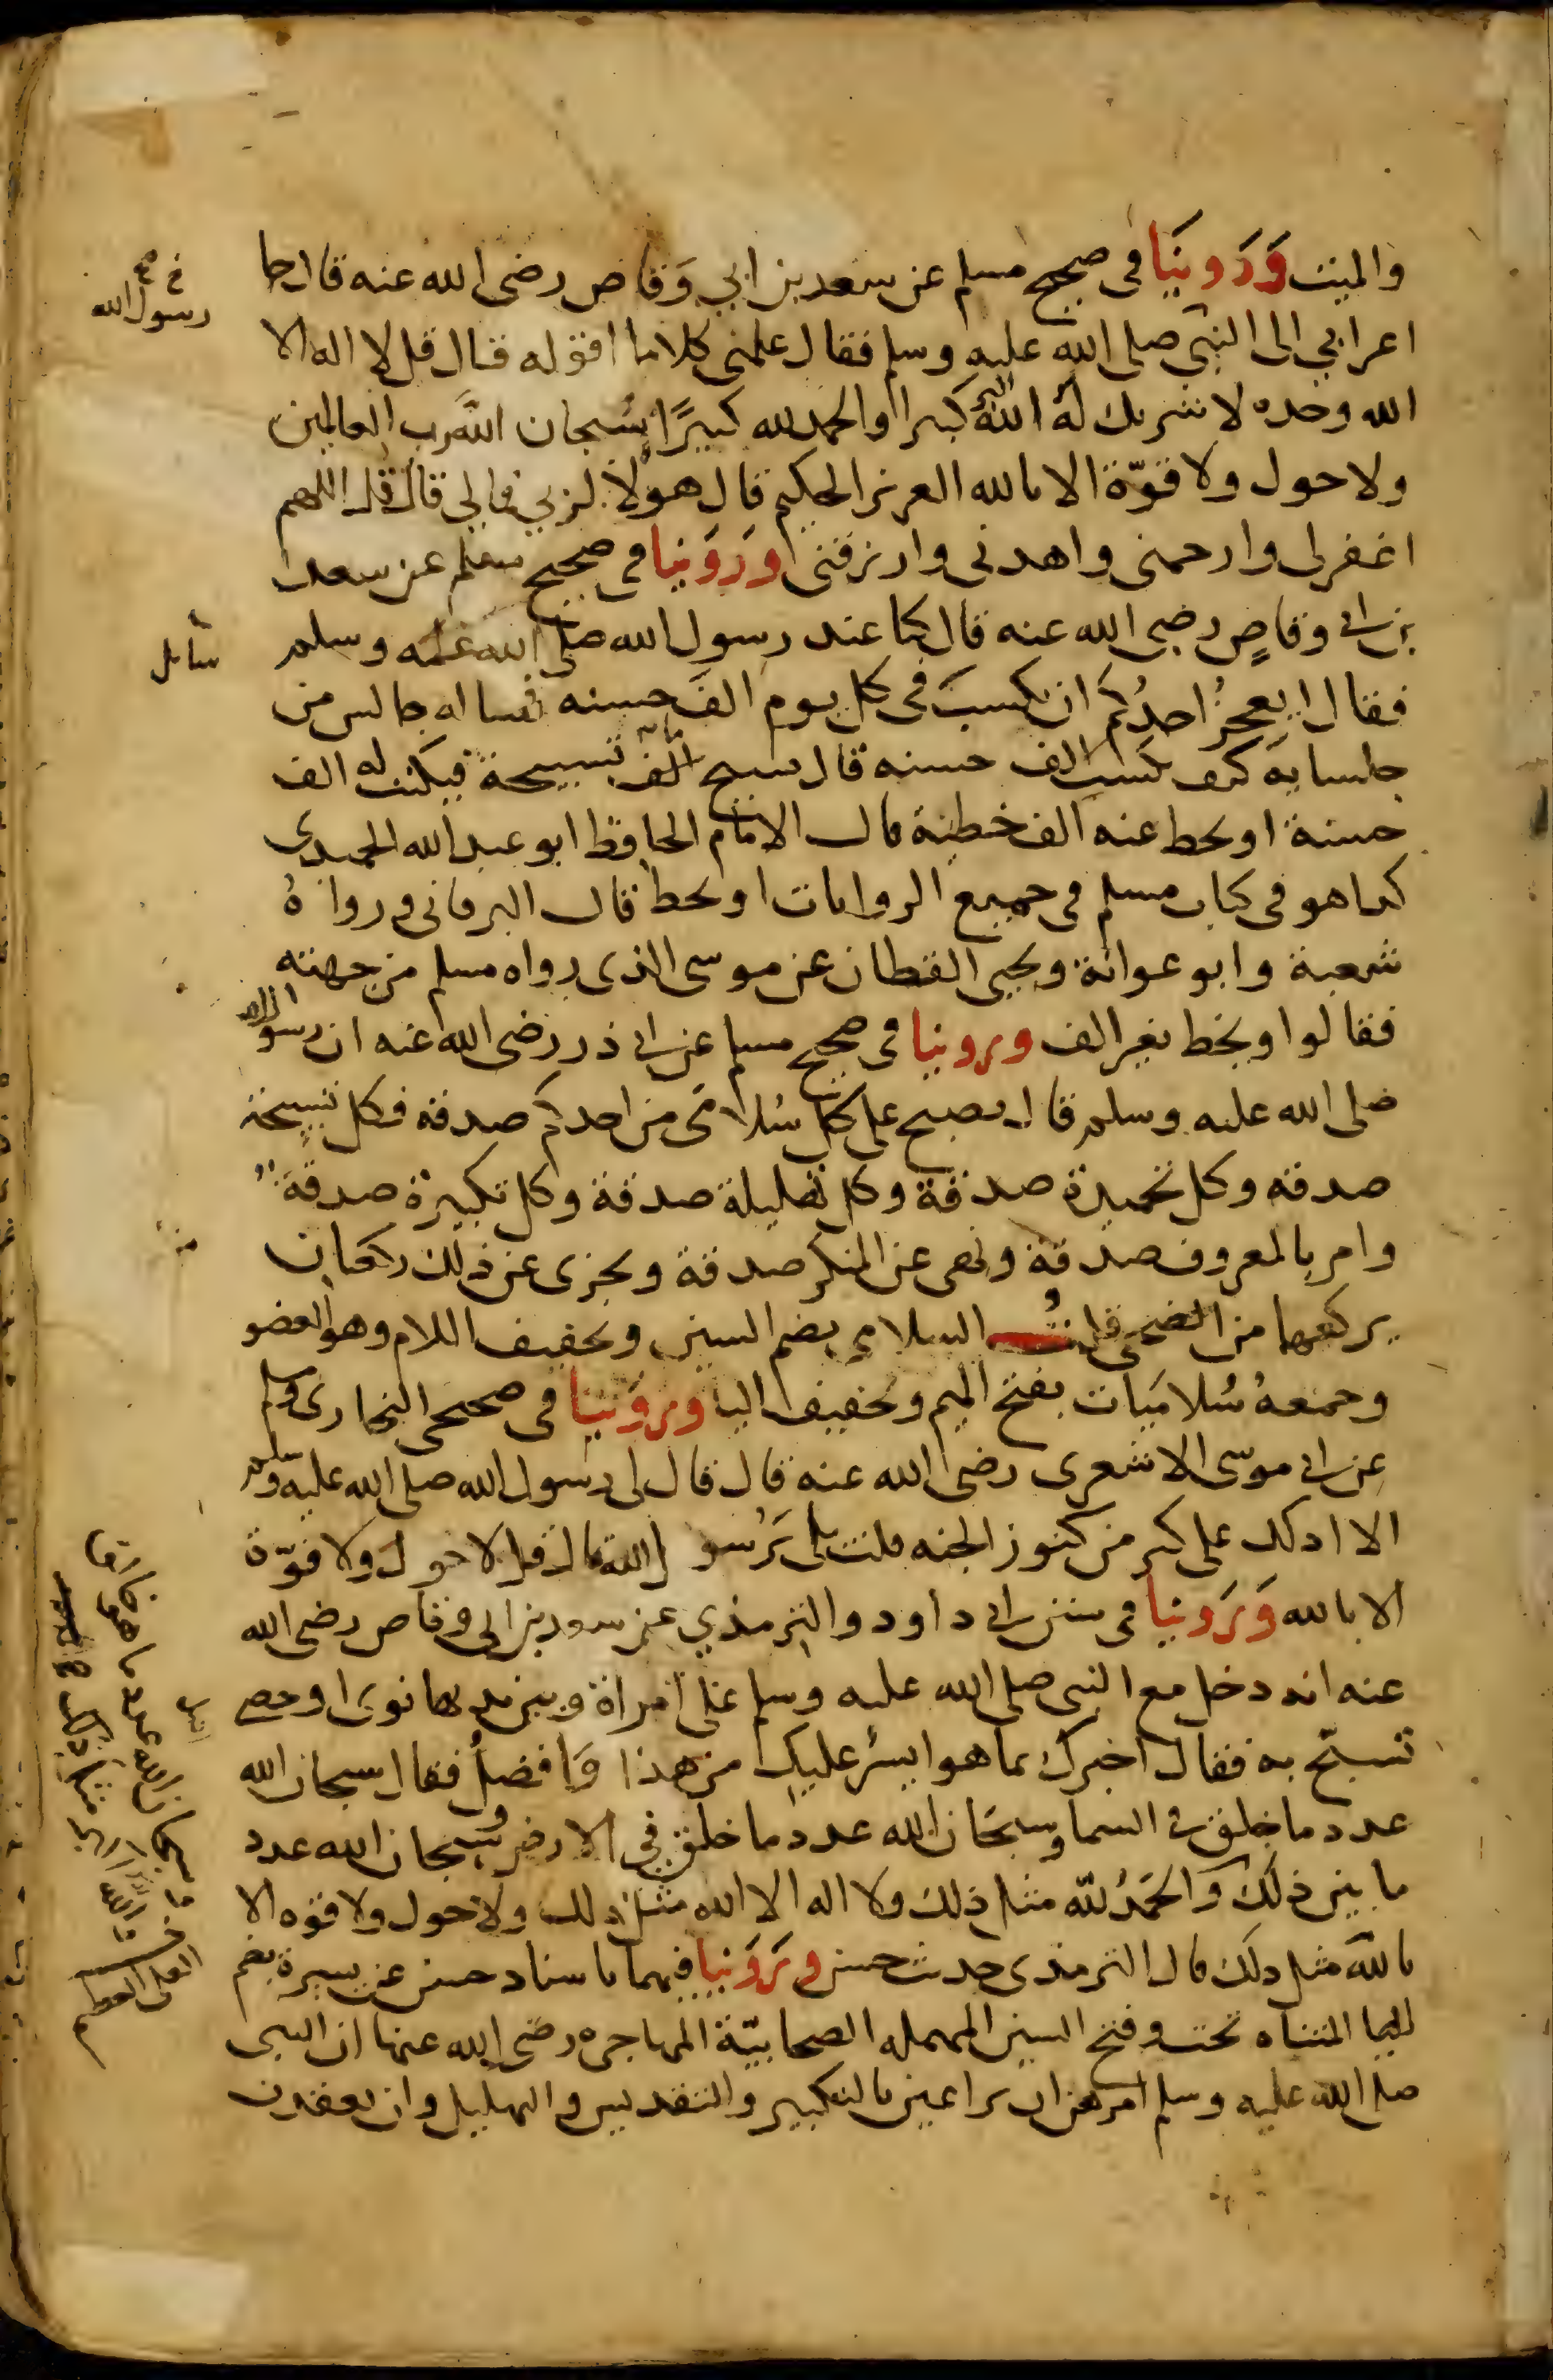 والميت وَرَوينَا في صحيح مسلم عن سعد بن ابي وَقاص رضى الله عنه قال جا
اعرابي الى النبي صلى الله عليه وسلم فقال علمنى كلاما اقوله قال قل لا اله الا
الله وحده لا شريك له اللهُ اكبر كبيرا والحمد لله كثيرًا سُبحان الله رب العالمين
ولا حول ولا قوّة الا بالله العزيز الحكيم قال هولا لربي فما لي قال قل اللهم
اغفر لى وارحمنى واهدنى وارزقنى ورَوَينا في صحيح مسلم عن سعد
بن ابى وقاصٍ رضى الله عنه قال كنا عند رسول الله صلى الله عليه وسلم
فقال ايعجزُ احدُكم ان يكسبَ في كل يوم الفَ حسنه فساله جالس من
جلسايه كيف يكسب الف حسنه قال يسبح مائة تسبيحة فيكتب له الف
حسنة او يحط عنه الف خطيئة قال الامام الحافظ ابو عبد الله الحميدى
كذا هو في كتاب مسلم في جميع الروايات او يحط قال البرقاني ورواهُ
شعبة وابو عوانة ويحيى القطان عن موسى الذى رواه مسلم من جهته
فقالوا ويحط بغير الف وروينا في صحيح مسلم عن ابى ذر رضى الله عنه ان رسول الله
صلى الله عليه وسلم قال يصبح على كل سُلامَى من احدكم صدقه فكل تسبيحة
صدقه وكل تحميدة صدقة وكل تهليلة صدقة وكل تكبيرة صدقة
وامر بالمعروف صدقة ونهى عن المنكر صدقة ويجزى عن ذلك ركعتان
يركعهما من الضحى قلتُ السلامى بضم السين وتخفيف اللام وهو العضو
وجمعهُ سُلامَيات بفتح الميم وتخفيف اليا وروَينا في صحيحى البخارى ومسلم
عن ابى موسى الاشعرى رضى الله عنه قال قال لى رسول الله صلى الله عليه وسلم
الا ادلك على كنز من كنوز الجنه قلت بلى يَرسُول الله قال قل لا حول ولا قوّة
الا بالله وَرَوينا في سنن ابى داود والترمذي عن سعد بن ابي وقاص رضى الله
عنه انه دخل مع النبى صلى الله عليه وسلم على امراة وبين يديها نوى او حصى
تسبّح به فقال اخبرك بما هو ايسرُ عليك من هذا وَافضلُ فقال سبحان الله
عدد ما خلق في السما وسبحَان الله عدد ما خلق في الارض وسبحان الله عدد
ما بين ذلك وَالحَمدُ لله مثل ذلك ولا اله الا الله مثل ذلك ولا حول ولا قوه الا
بالله مثل ذلك قال الترمذى حديث حسن ورَوَينا فيهما باسناد حسن عن يسيرة بضم
اليا المثناه تحت وفتح السين المهمله الصحابيّة المهاجره رضى الله عنها ان النبى
صلى الله عليه وسلم امرهن ان يراعين بالتكبير والتقديس والتهليل وان يعقدن
رسول الله
سايل
العلى العظيم